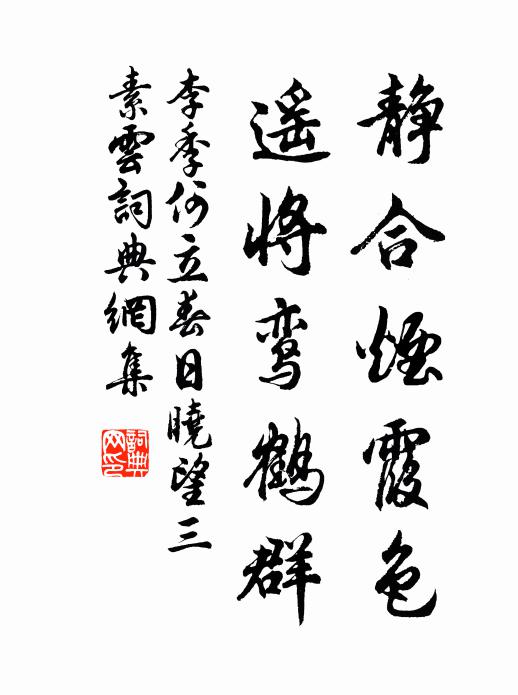 靜合煙霞色
遥将鸾鶴群
李季何立春日曉望三
素雲詞典網集
詞典
网印